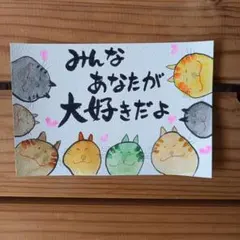 みんな
あなたが
大好きだよ